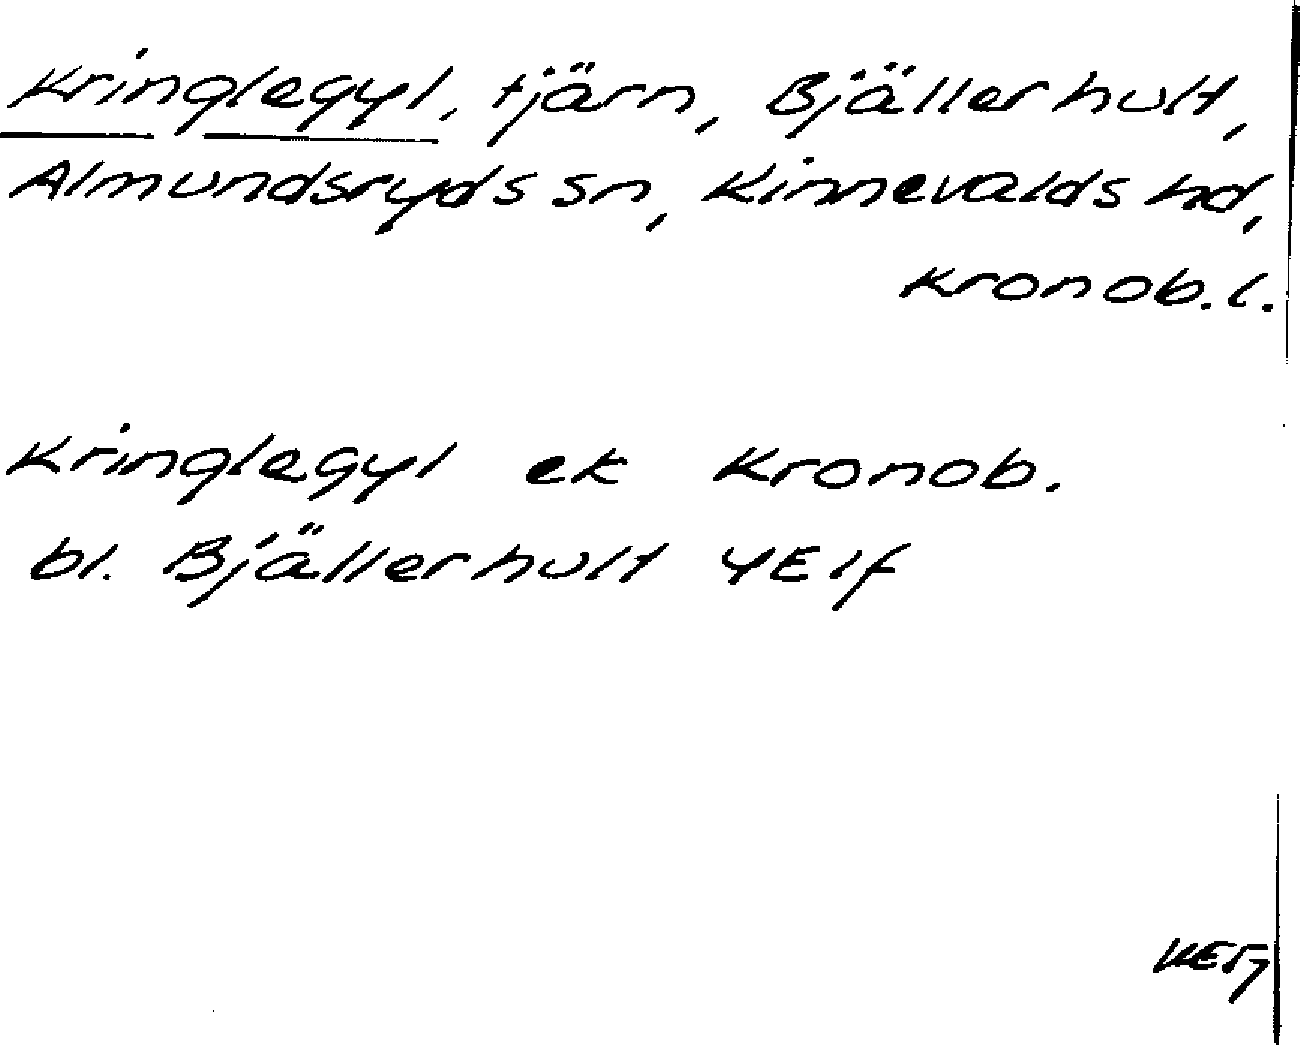 Kringlegyl, tjärn, Bjällerhult,
Almundsryds sn, Kinnevalds hd,
Kronob. l.
Kringlegyl ek Kronob.
bl. Bjällerhult 4E1f